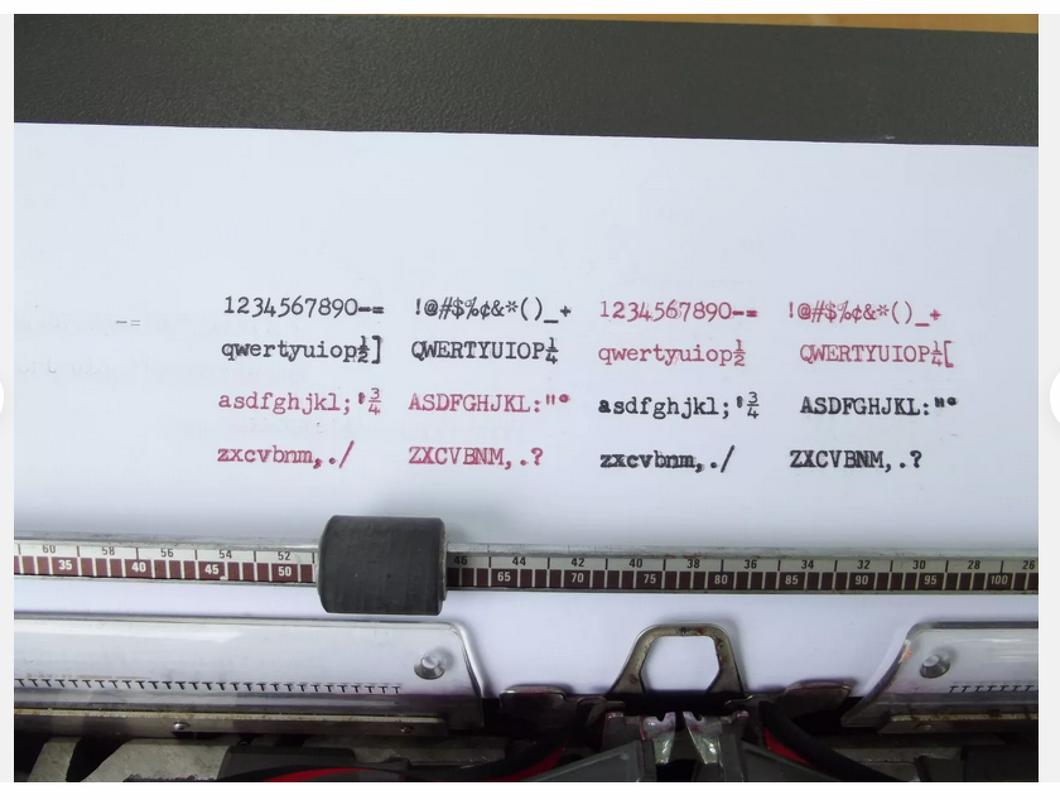 1234567890-= !@#$%¢&*()_+ 1234567890-= !@#$%¢&*()_+
qwertyuiop½] QWERTYUIOP¼ qwertyuiop½ QWERTYUIOP¼[
asdfghjkl;'¾ ASDFGHJKL:"° asdfghjkl;'¾ ASDFGHJKL:"°
zxcvbnm,./ ZXCVBNM,.? zxcvbnm,./ ZXCVBNM,.?
-=
60 58 56 54 52 46 44 42 40 38 36 34 32 30 28 26
35 40 45 50 65 70 75 80 85 90 95 100